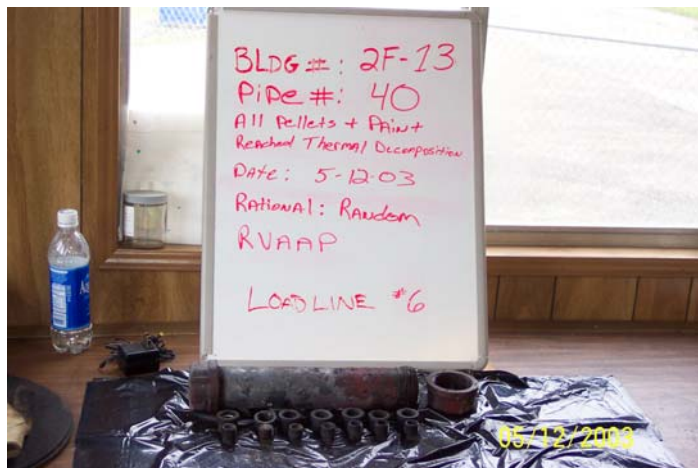 BLDG #: 2F-13
PiPe #: 40
All Pellets + PAint
Reached Thermal Decomposition
DATe: 5-12-03
RATional: RANdom
RVAAP
LOAD LINE #6
05/12/2003